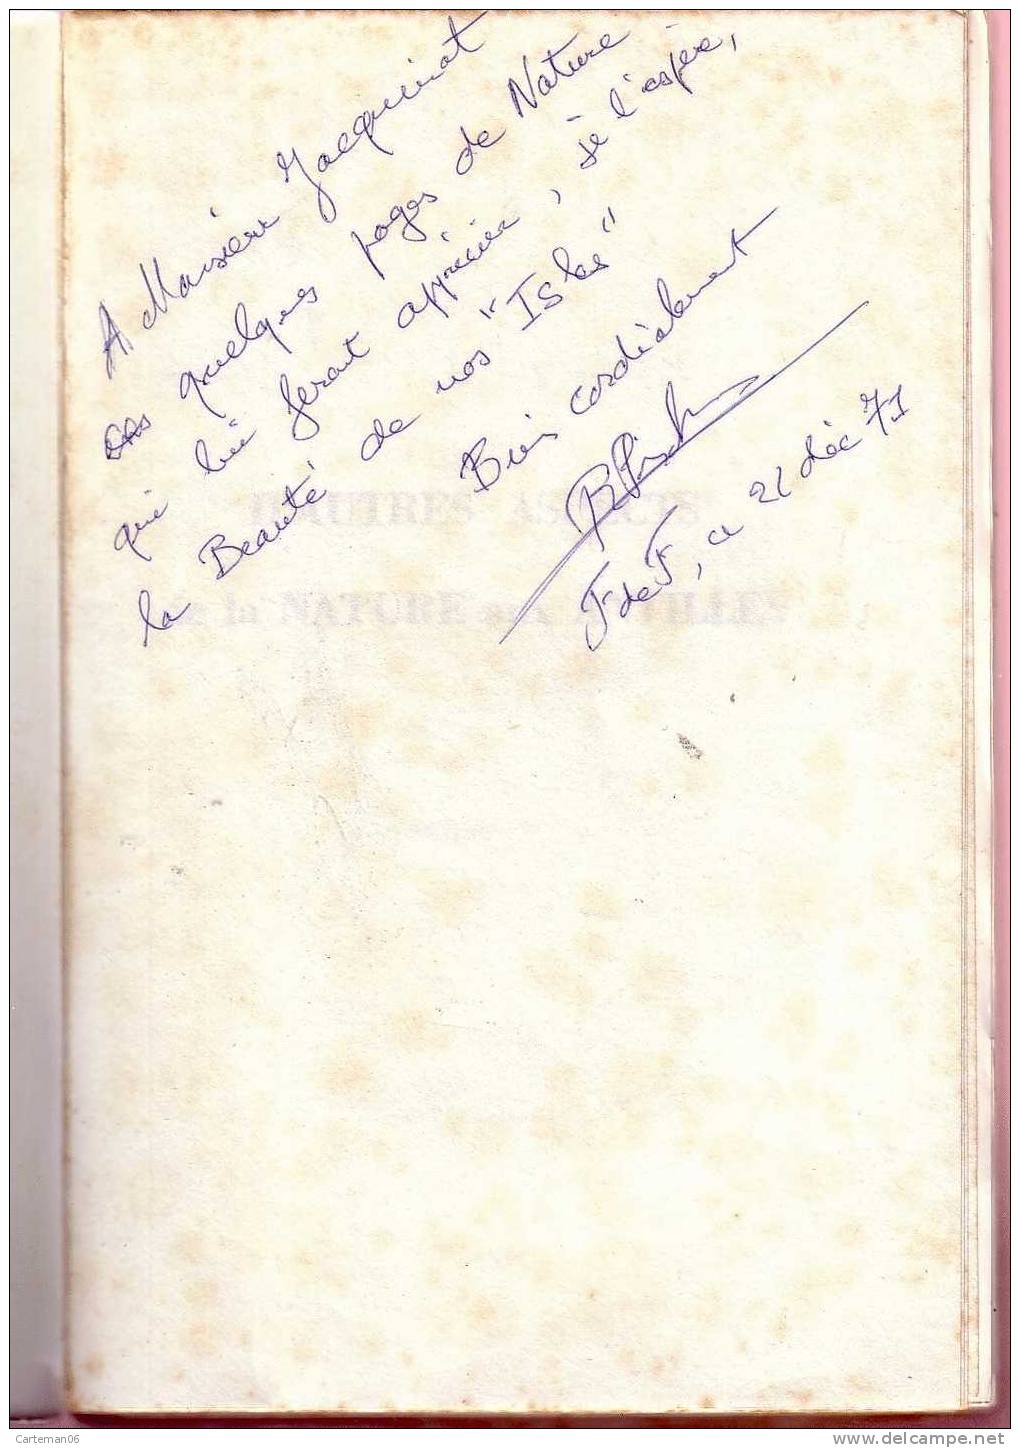 A Monsieur Jacquinot
ces quelques pages de Nature
qui lui feront apprécier, je l'espère,
la Beauté de nos "Isles"
Bien cordialement
F de F, ce 21 déc 71
D'AUTRES ASPECTS
de la NATURE aux ANTILLES
Carteman06
www.delcampe.net